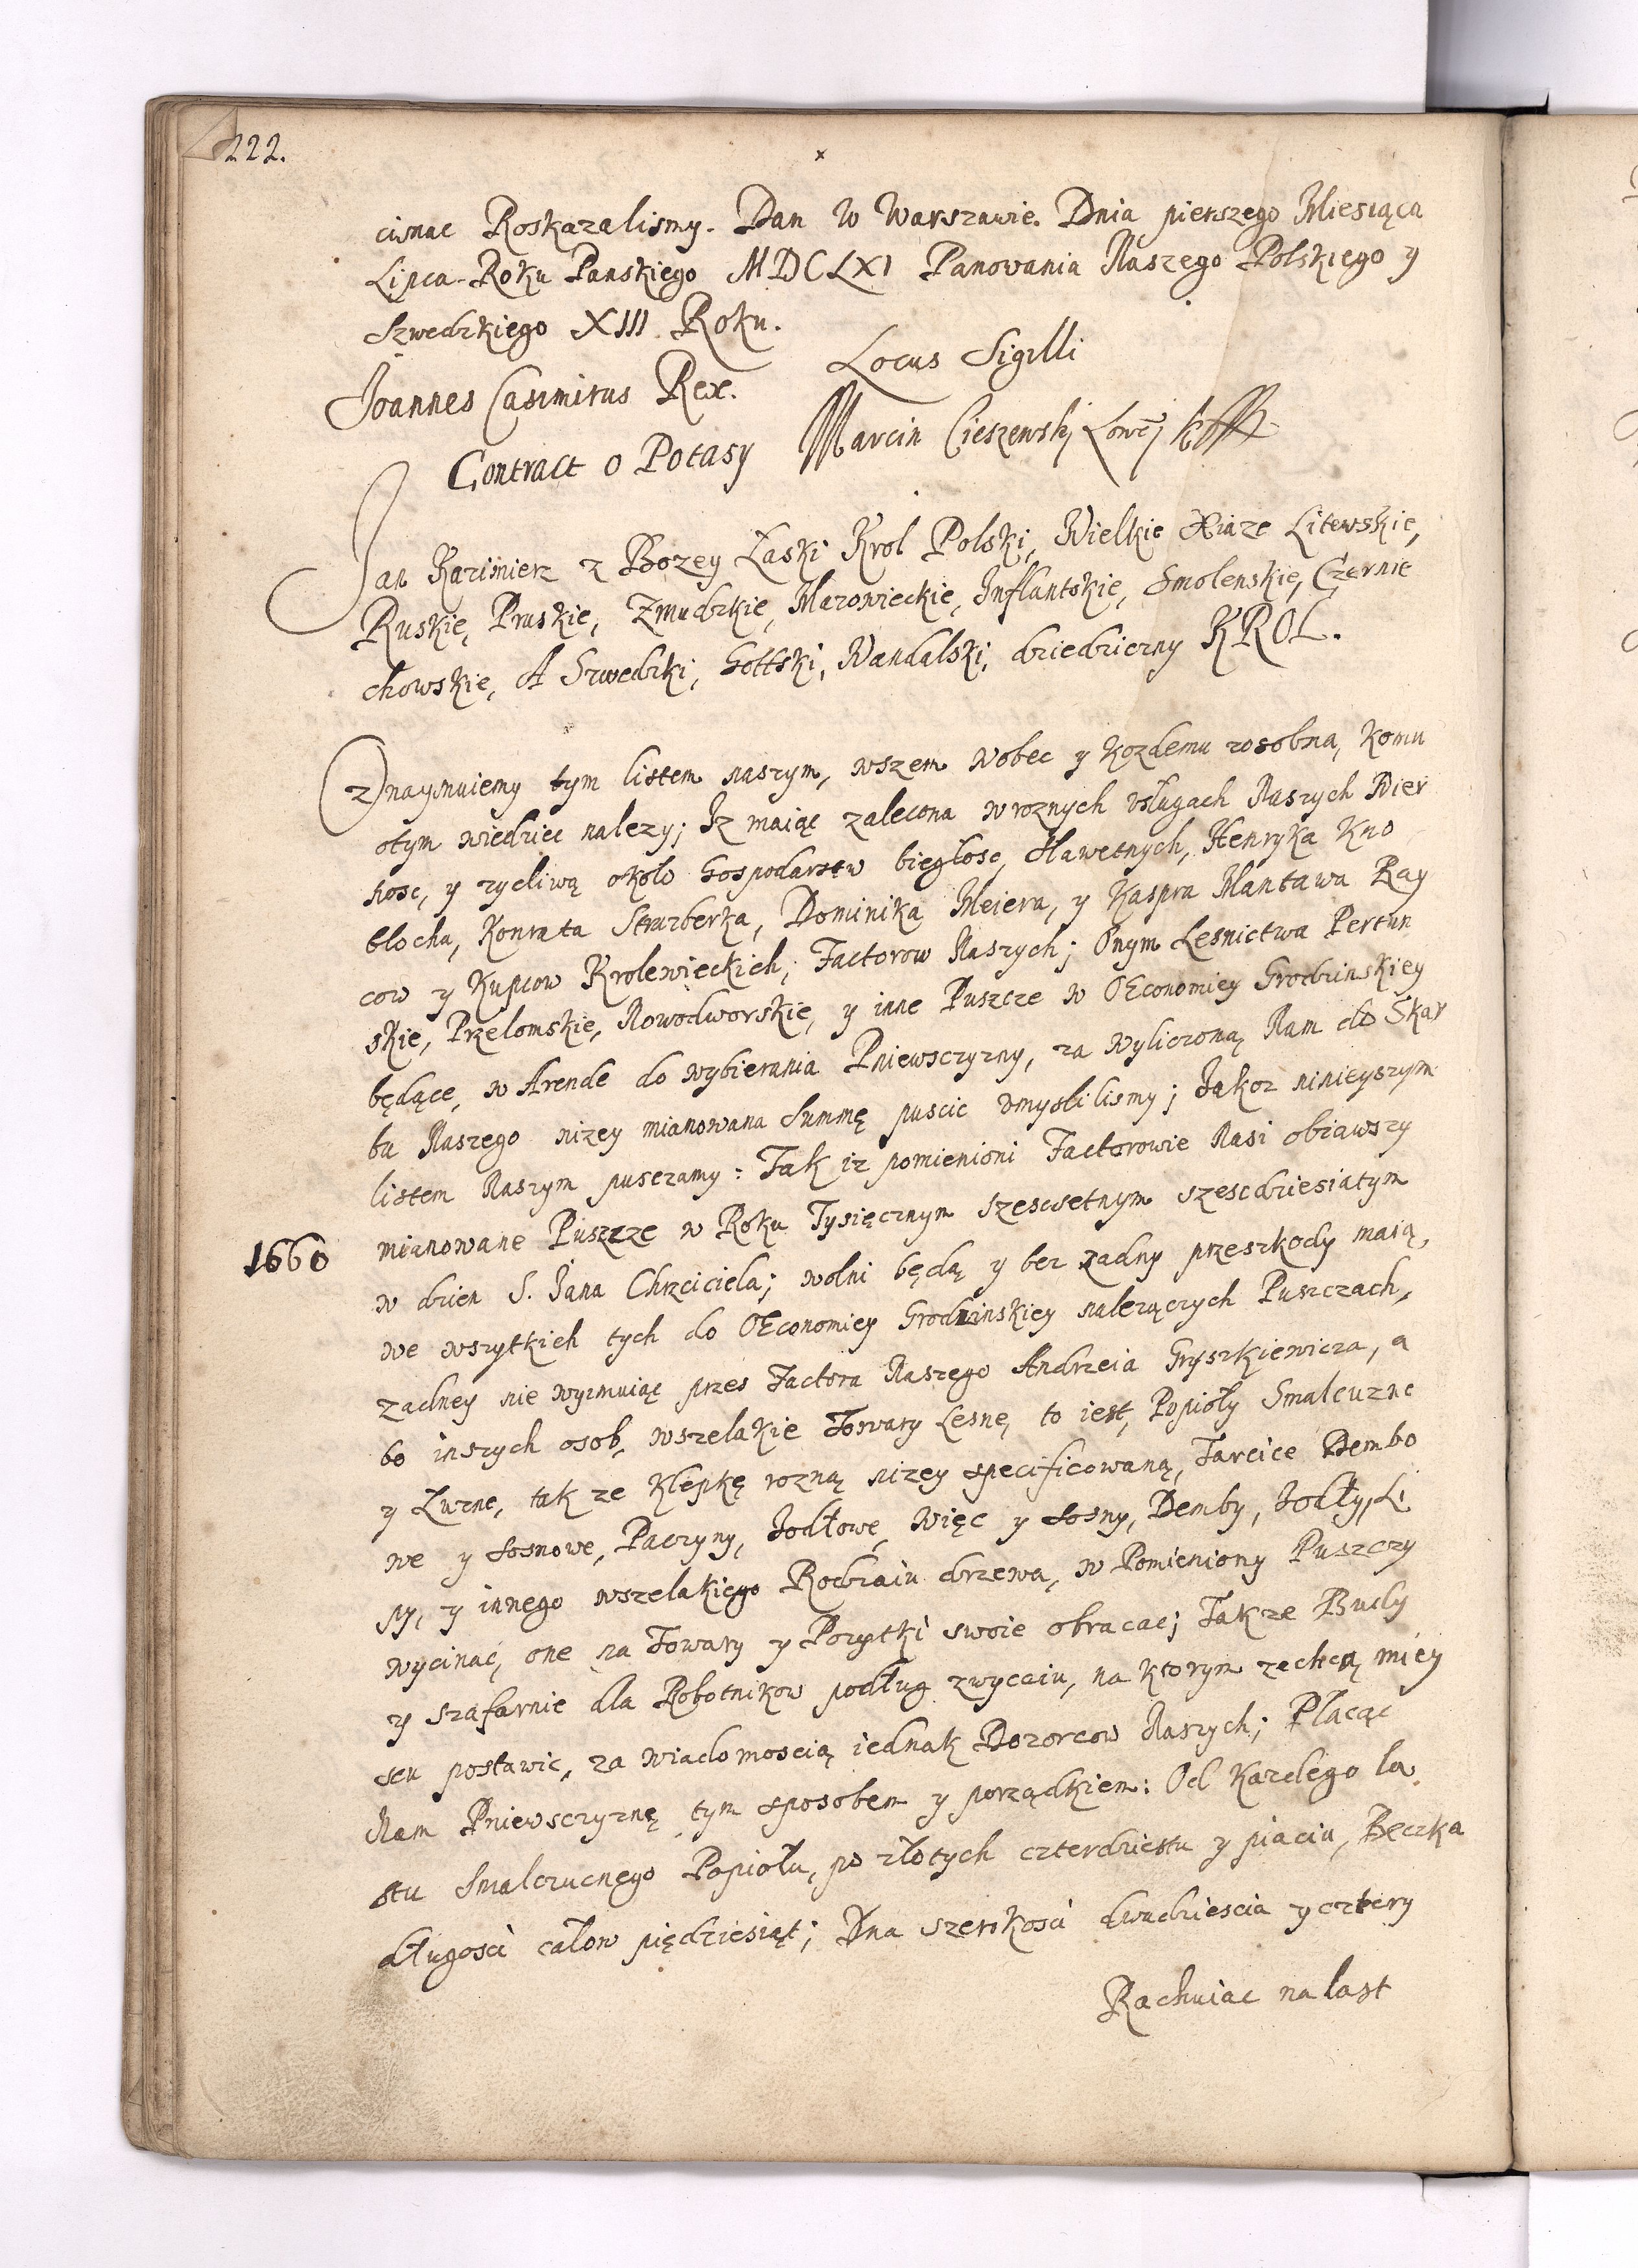 222.
cisnac Roskazalismy. Dan w Warszawie. Dnia pierszego Miesiąca
Lipca. Roku Panskiego MDCLXI Panowania Naszego Polskiego y
Szwedzkiego XIII Roku.
Locus Sigilli
Joannes Casimirus Rex.
Marcin Cieszewskj
Contract o Potasy
Jan Kazimierz z Bozey Łaski Krol Polski, Wielkie Xiaze Litewskie,
Ruskie, Pruskie, Zmudzkie, Mazowieckie, Inflantskie, Smolenskie, Czernie
chowskie, A Szwedzki, Gottski, Wandalski, dziedziczny KROL.
Oznaymuiemy tym listem naszym, wszem wobec y kozdemu zosobna, komu
otym wiedziec nalezy; Iz maiąc zalecona w roznych usługach Naszych Wier
nosc, y zycliwą około Gospodarstw biegłosc, sławetnych, Henryka Kno
blocha, Konrata Strazberka, Dominika Meiera, y Kaspra Mantawa Ray
cow y Kupcow Krolewieckich, Factorow Naszych; Onym Lesnictwa Pertun
skie, Przelomskie, Nowodworskie, y inne Puszcze w OEconomiey Grodzinskiey
będące, w Arende do wybierania Pniewsczyzny, za wyliczoną Nam do Skar
bu Naszego nizey mianowana Summę puscic umyslilismy; Jakoz ninieyszym
listem Naszym pusczamy: Tak iz pomienioni Factorowie Nasi obiawszy
mianowane Puszcze w Roku Tysięcznym szescsetnym szescdziesiatym
1660
w dzien S. Jana Chrzciciela; wolni będą y bez zadny przeszkody maią,
we wszytkich tych do OEconomiey Grodzinskiey nalezączych Puszczach,
zadney nie wyzmuiąc przes Factora Naszego Andrzeia Gryszkiewicza, a
bo inszych osob, wszelakie Towary Lesne, to iest, Popioły Smalcuzne
y Luzne, tak ze Klepkę rozną nizey specificowaną, Tarcice Dembo
we y sosnowe, Paczyny, Jodłowe, Więc y sosny, Demby, Jodły, Li
py, y innego wszelakiego Rodzaiu drzewa, w Pomieniony Puszczy
wycinać, one na Towary y Pozytki swoie obracac; Takze Budy
y szafarnie dla Robotnikow podług zwyczaiu, na ktorym zechcą miey
scu postawic, za wiadomoscią iednak Dozorcow Naszych; Płacąc
Nam Pniewsczyznę tym sposobem y porządkiem: Od Kazdego la
stu Smalczucnęgo Popiołu, po złotych czterdziestu y piaciu, Beczka
długosci calow piędziesiąt; Dna szerokosci dwudziescia y cztery
Rachuiac na last